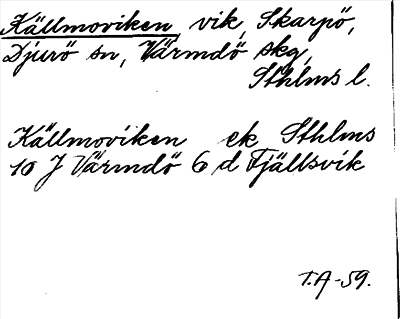 Källmoviken, vik, Skarpö,
Djurö sn, Värmdö skg,
Sthlms l.
Källmoviken ek Sthlms
10 J Värmdö 6 d Fjällsvik
T.A-59.